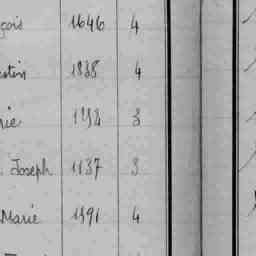 çois 1646 4
1838 4
rie 3
Joseph 1137 3
Marie 1391 4